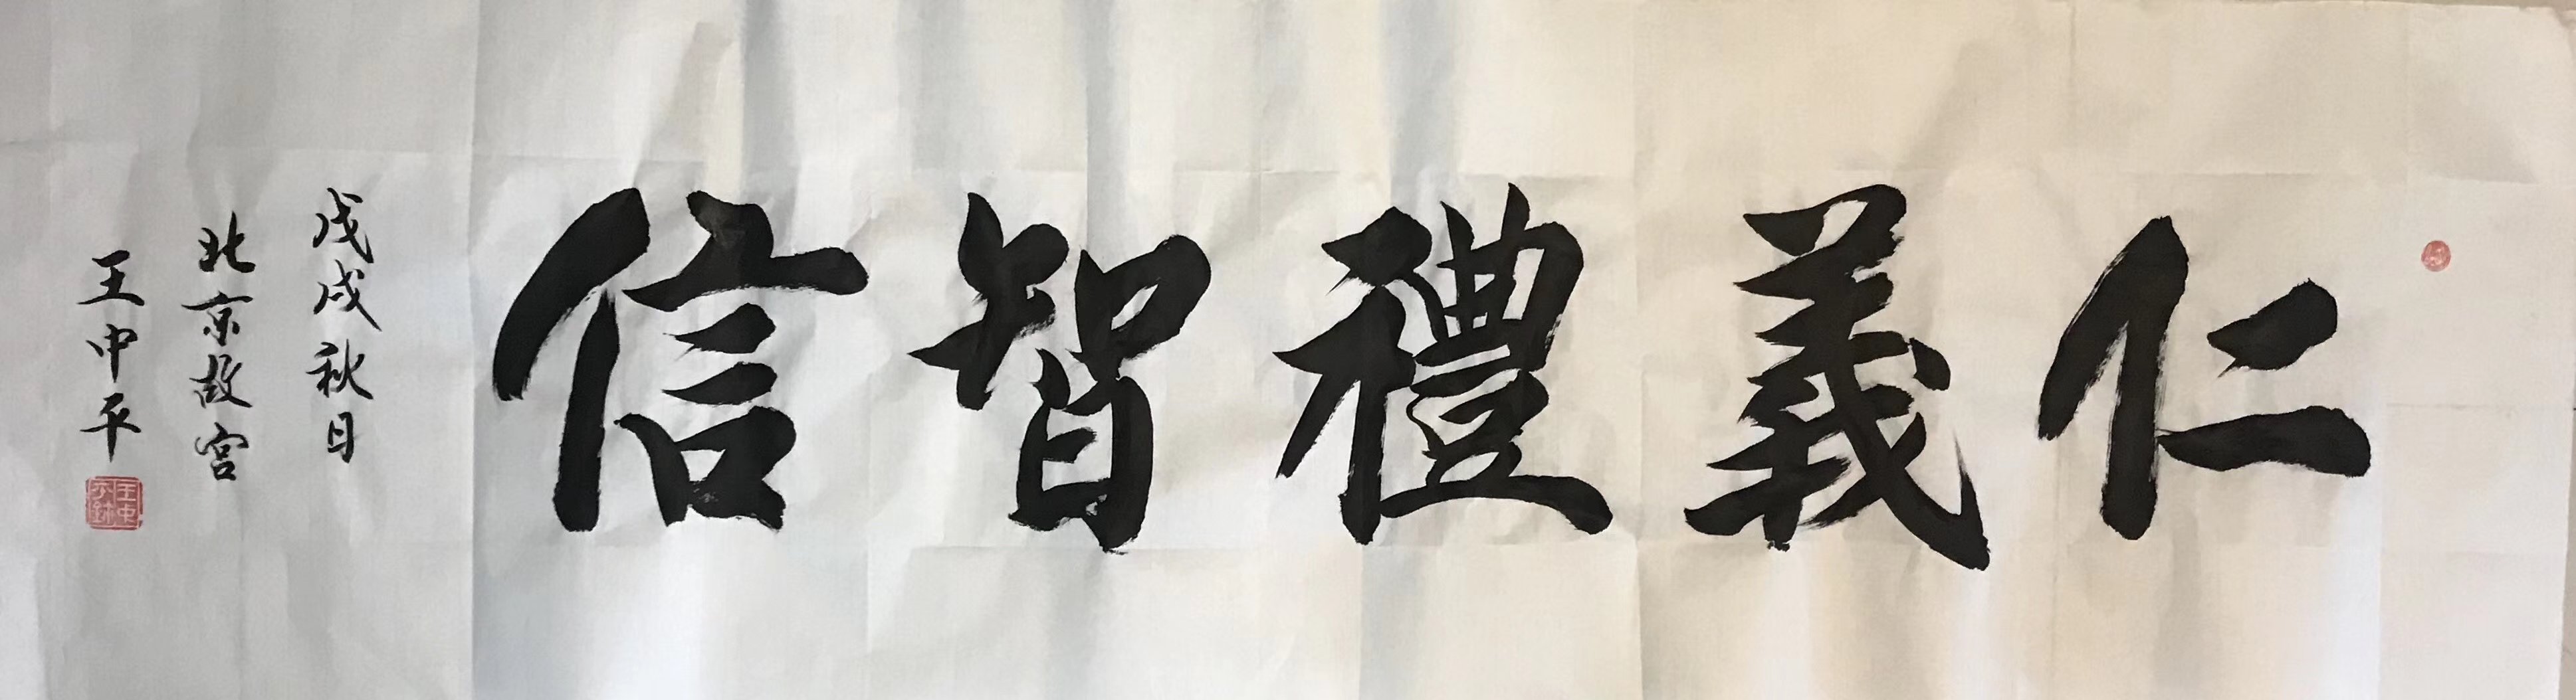 仁義禮智信
戊戌秋日
北京故宮
王中平